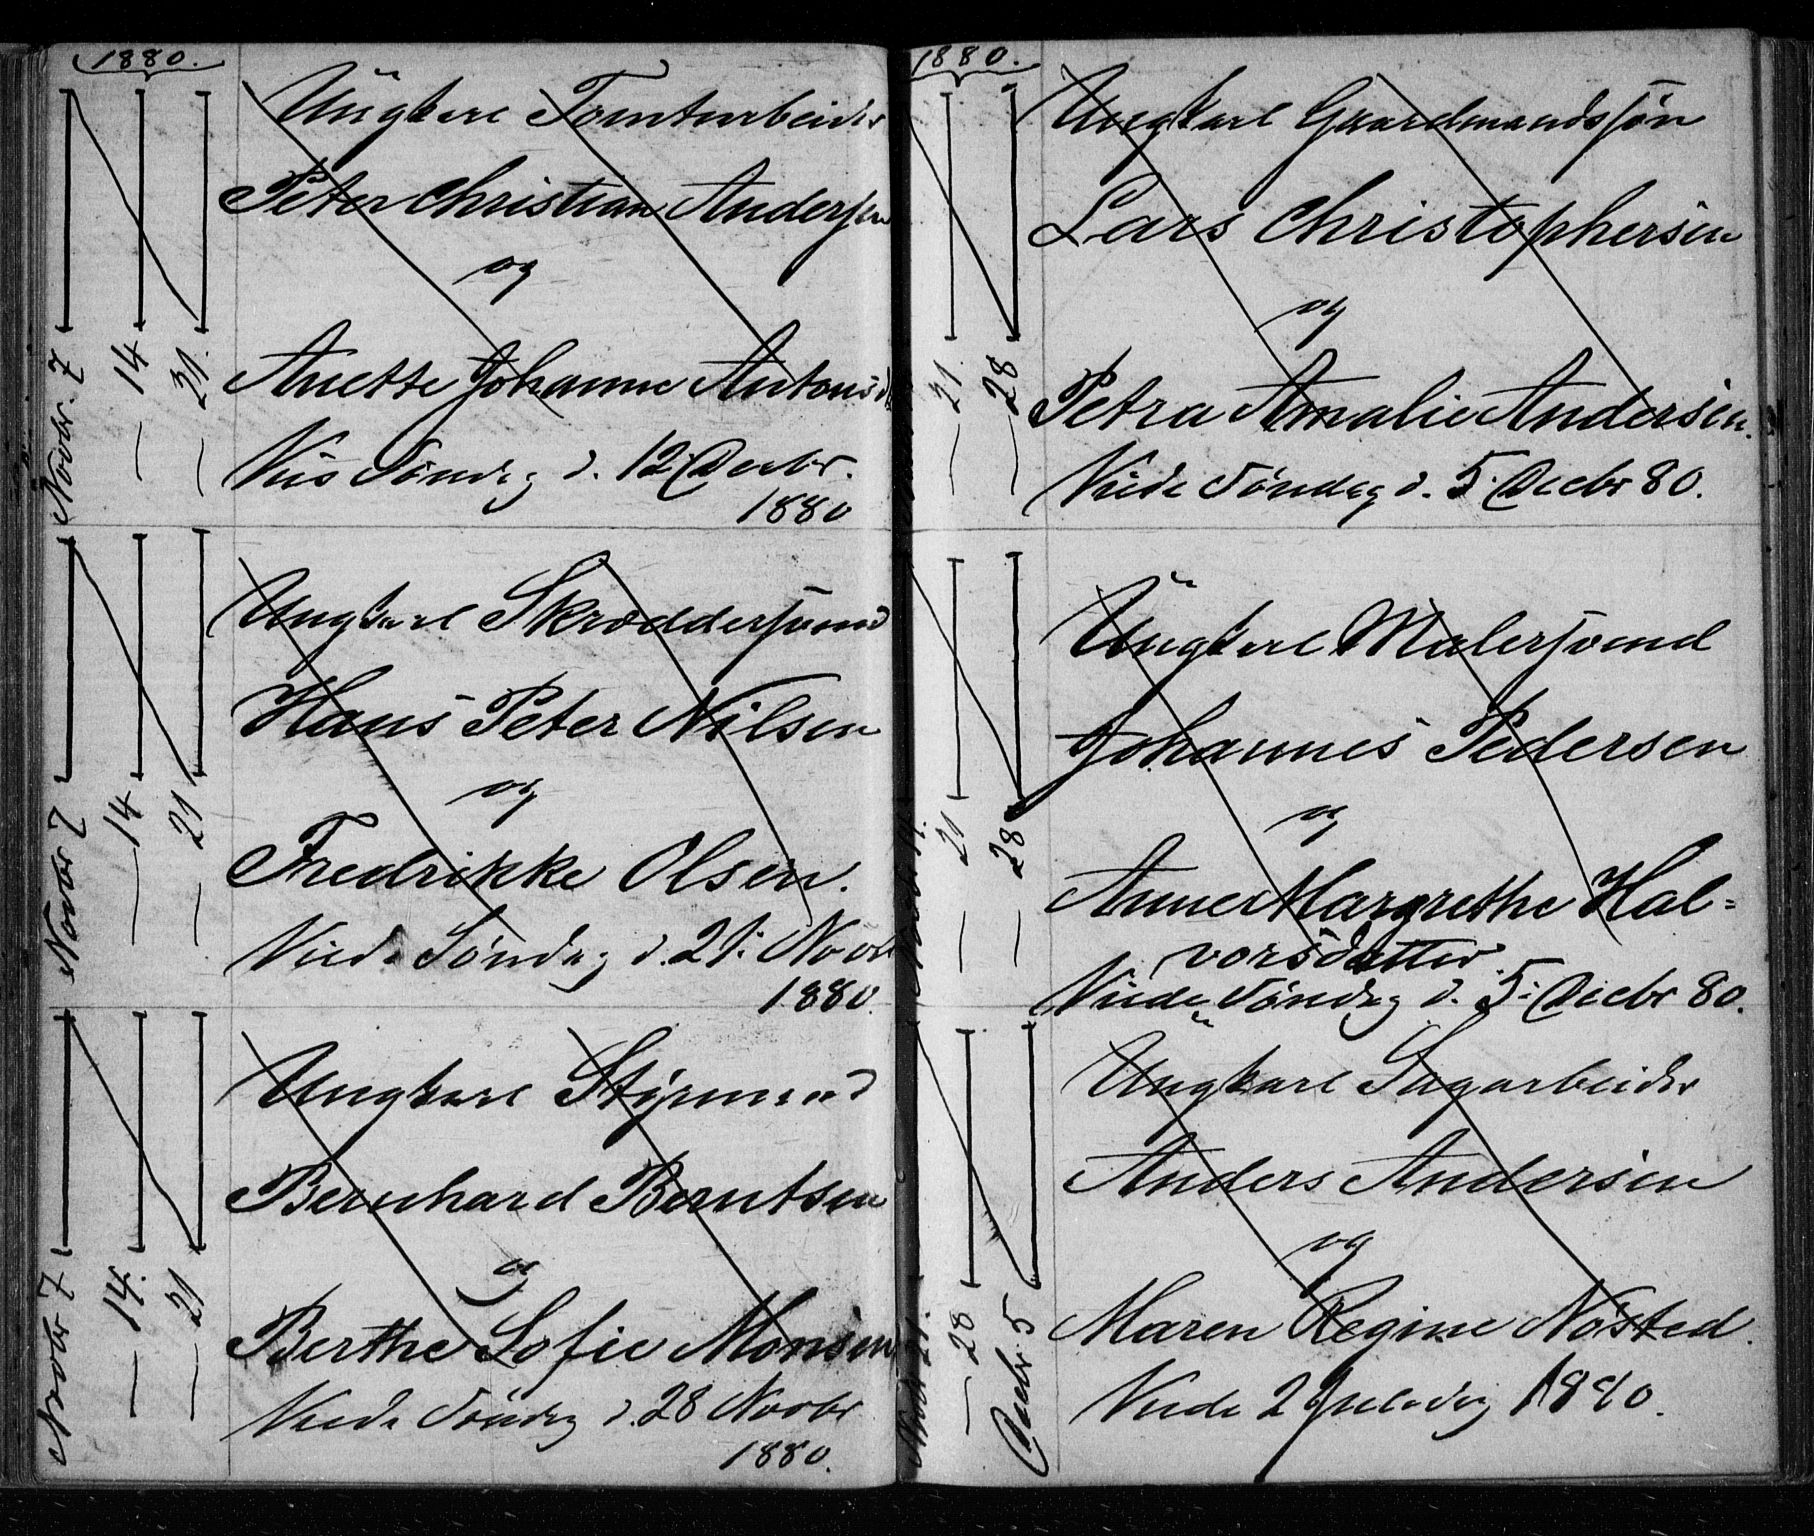 1880.
Novbr. 7
— 14
— 21.
Ungkarl Tomtarbeider
Peter Christian Andersen
og
Anette Johanne Antonsd
Vies Søndag d. 12 Decbr.
1880
Novbr 7
— 14
— 21
Ungkarl Skræddersvend
Hans Peter Nilsen
og
Fredrikke Olsen.
Viede Søndag d. 21. Novbr
1880.
Novbr 7
— 14.
— 21
Ungkarl Styrmand
Bernhard Berntsen
og
Berthe Sofie Monsen
Viede Søndag d. 28 Novbr
1880.
1880.
— 21.
— 28
Ungkarl Gaardmandssøn
Lars Christophersen
og
Petra Amalie Andersen.
Viede Søndag d. 5. Decbr 80.
— 21
— 28
Ungkarl Malersvend
Johannes Pedersen
og
Anne Margrethe Hal=
vorsdatter.
Viede Søndag d. 5. Decbr 80.
Novbr 21.
— 28
Decbr. 5
Ungkarl Sagarbeider
Anders Andersen
og
Maren Regine Nøsted.
Viede 2 Juledag 1880.